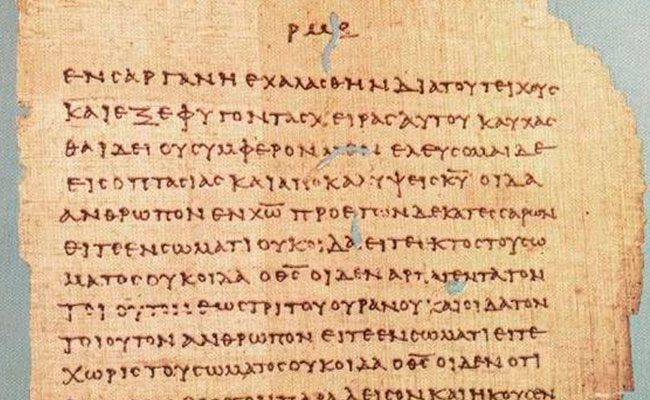 ΕΝϹΑΡΓΑΝΗΕΧΑΛΑϹΘΗΝΔΙΑΤΟΥΤΕΙΧΟΥϹ
ΚΑΙΕΞΕΦΥΓΟΝΤΑϹΧΕΙΡΑϹΑΥΤΟΥΚΑΥΧΑϹ
ΘΑΙΔΕΙΟΥϹΥΜΦΕΡΟΝ ΕΛΕΥϹΟΜΑΙΔΕ
ΕΙϹΟΠΤΑϹΙΑϹΚΑΙΑΠΟΚΑΛΥΨΕΙϹΚ̅Υ̅ ΟΙΔΑ
ΑΝΘΡΩΠΟΝΕΝΧ̅Ω̅ ΠΡΟΕΤΩΝΔΕΚΑΤΕϹϹΑΡΩΝ
ΕΙΤΕΕΝϹΩΜΑΤΙΟΥΚΟΙΔΑΕΙΤΕΕΚΤΟϹΤΟΥϹΩ
ΜΑΤΟϹΟΥΚΟΙΔΑ ΟΘ̅Ϲ̅ ΟΙΔΕΝΑΡΠΑΓΕΝΤΑΤΟΝ
ΤΟΙΟΥΤΟΝΕΩϹΤΡΙΤΟΥΟΥΡΑΝΟΥΚΑΙΟΙΔΑΤΟΝ
ΤΟΙΟΥΤΟΝΑΝΘΡΩΠΟΝΕΙΤΕΕΝϹΩΜΑΤΙΕΙΤΕ
ΧΩΡΙϹΤΟΥϹΩΜΑΤΟϹΟΥΚΟΙΔΑ ΟΘ̅Ϲ̅ ΟΙΔΕΝΟΤΙ